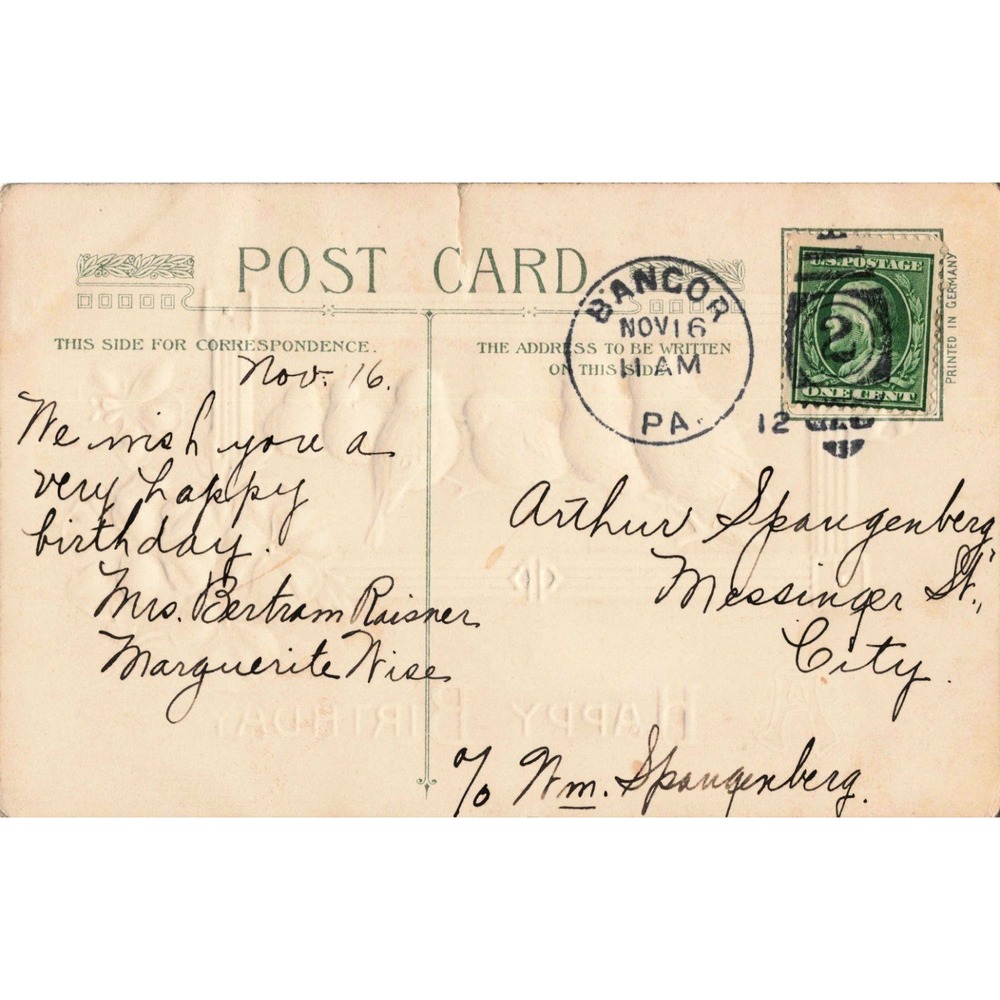 POST CARD
THIS SIDE FOR CORRESPONDENCE.
THE ADDRESS TO BE WRITTEN
ON THIS SIDE.
BANGOR
NOV 16
11 AM
PA.
12
U.S. POSTAGE
2
ONE CENT
PRINTED IN GERMANY
Nov. 16.
We wish you a
very happy
birthday.
Mrs. Bertram Raisner
Marguerite Wise
Arthur Spangenberg
Messinger St.,
City.
c/o Wm. Spangenberg.
HAPPY BIRTHDAY